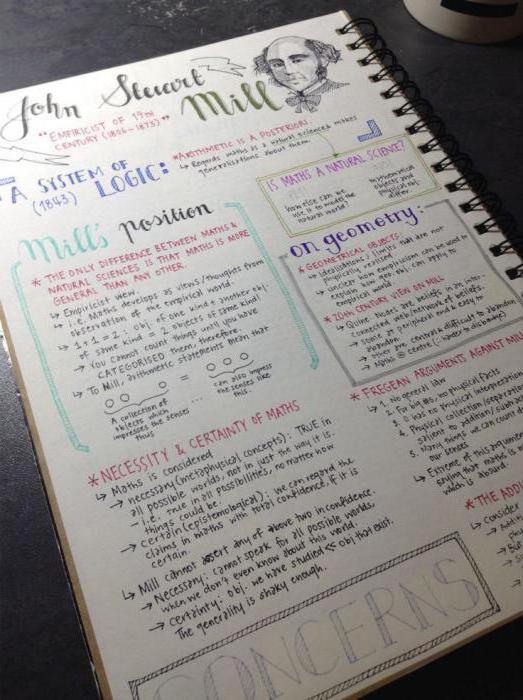 John Stuart Mill
"EMPIRICIST OF 19TH
CENTURY (1806-1873)"
A SYSTEM OF
(1843) LOGIC:
*ARITHMETIC IS A POSTERIORI.
↳ Regards maths as a natural science, makes
generalisations about them.
IS MATHS A NATURAL SCIENCE?
how else can we
use it to model the
natural world?
mathematical
objects and
physical obj.
differ.
Mill's position
* THE ONLY DIFFERENCE BETWEEN MATHS &
NATURAL SCIENCES IS THAT MATHS IS MORE
GENERAL THAN ANY OTHER.
↳ Empiricist view
↳ i.e. Maths develop as views/thoughts from
observation of the empirical world.
↳ 1+1=2: obj. of one kind + another obj
of same kind = 2 objects of same kind!
→ You cannot count things until you have
CATEGORISED them, therefore.
↳ To Mill, arithmetic statements mean that
=
A collection of
objects which
impresses the senses
thus
...
can also impress
the senses like
this.
on geometry:
* GEOMETRICAL OBJECTS:
↳ Idealisations / limits that are not
physically realised
↳ unclear how empiricism can be used to
explain how geo. obj. can apply to
empirical world.
* 20TH CENTURY VIEW ON MILL
↳ Quine: Maths are beliefs in an inter-
connected web/network of beliefs.
→ some at peripheral and & easy to
abandon
→ other are central & difficult to abandon
→ Maths @ centre (∴ harder to disbelieve)
*NECESSITY & CERTAINTY OF MATHS
↳ Maths is considered
→ necessary (metaphysical concepts): TRUE in
all possible worlds, not in just the way it is.
- i.e. true in all possibilities, no matter how
things could be.
→ certain (epistemological): we can regard the
claims in maths with total confidence, if it is
certain.
↳ Mill cannot assert any of above two in confidence.
→ Necessary: cannot speak for all possible worlds,
when we don't even know about this world.
→ certainty: obj. we have studied << obj that exist.
The generality is shaky enough.
* FREGEAN ARGUMENTS AGAINST MILL
↳ 1. No general law
2. For big #s: no physical facts
3. 0 has no physical interpretation
4. Physical collection/separation
salient to addition/sub
5. Many things we can count
our senses
↳ Extreme of this argument
saying that maths is
which is absurd.
* THE ADDI
↳ Consider
→ Add
phy
→ Bu
CONCERNS